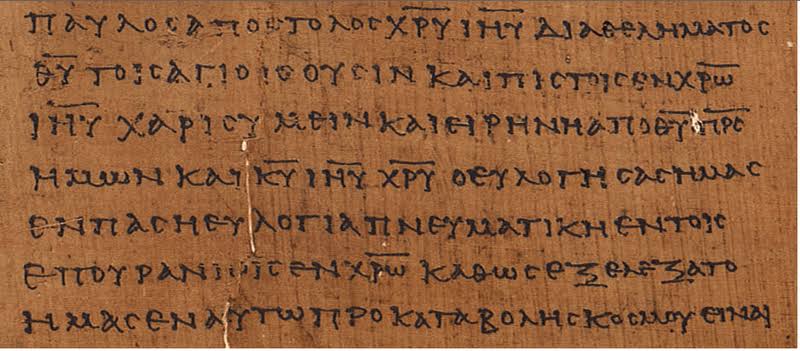 ΠΑΥΛΟϹ ΑΠΟϹΤΟΛΟϹ Χ̅Ρ̅Υ̅ Ι̅Η̅Υ̅ ΔΙΑ ΘΕΛΗΜΑΤΟϹ
Θ̅Υ̅ ΤΟΙϹ ΑΓΙΟΙϹ ΟΥϹΙΝ ΚΑΙ ΠΙϹΤΟΙϹ ΕΝ Χ̅Ρ̅Ω̅
Ι̅Η̅Υ̅ ΧΑΡΙϹ ΥΜΕΙΝ ΚΑΙ ΕΙΡΗΝΗ ΑΠΟ Θ̅Υ̅ Π̅Ρ̅Ϲ̅
ΗΜΩΝ ΚΑΙ Κ̅Υ̅ Ι̅Η̅Υ̅ Χ̅Ρ̅Υ̅ Ο ΕΥΛΟΓΗϹΑϹ ΗΜΑϹ
ΕΝ ΠΑϹΗ ΕΥΛΟΓΙΑ ΠΝΕΥΜΑΤΙΚΗ ΕΝ ΤΟΙϹ
ΕΠΟΥΡΑΝΙΟΙϹ ΕΝ Χ̅Ρ̅Ω̅ ΚΑΘΩϹ ΕΞΕΛΕΞΑΤΟ
ΗΜΑϹ ΕΝ ΑΥΤΩ ΠΡΟ ΚΑΤΑΒΟΛΗϹ ΚΟϹΜΟΥ ΕΙΝΑΙ